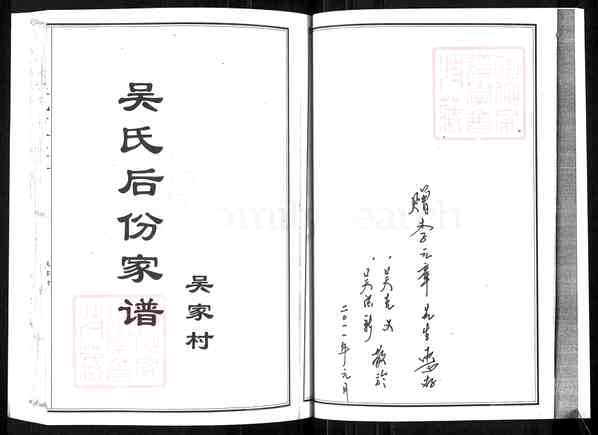 吴氏后份家谱
吴家村
赠李元章先生惠存
吴克义
吴 敬於
二〇一一年元月